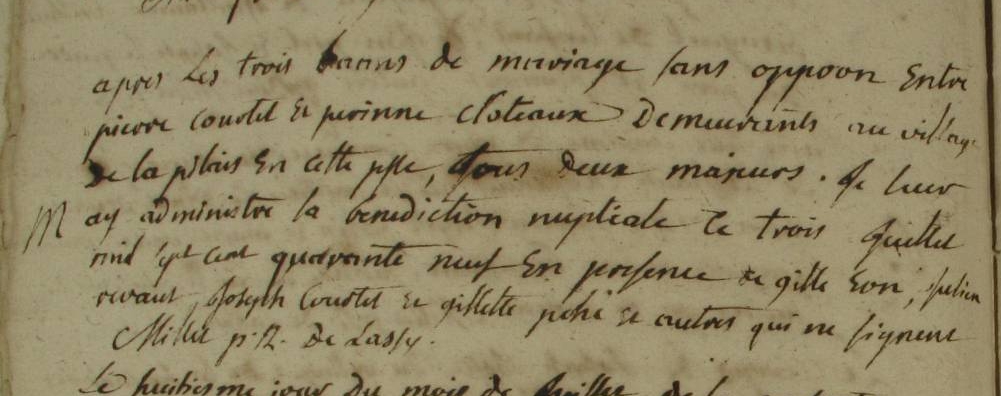 apres Les trois banns de mariage sans oppoon Entre
pierre courtel Et perinne Cloteaux Demeurants au village
De la pilais En cette psse, tous deux majeurs. Je leur
M ay administre la benediction nuptiale Le trois Juillet
mil sept cent quarante neuf En presence de gille Eon, Julien
rivaut, Joseph Courtel et gillette pehé et autres qui ne signent
Millet p. R. De Lassy.
Le huitiesme jour Du mois de Juillet de